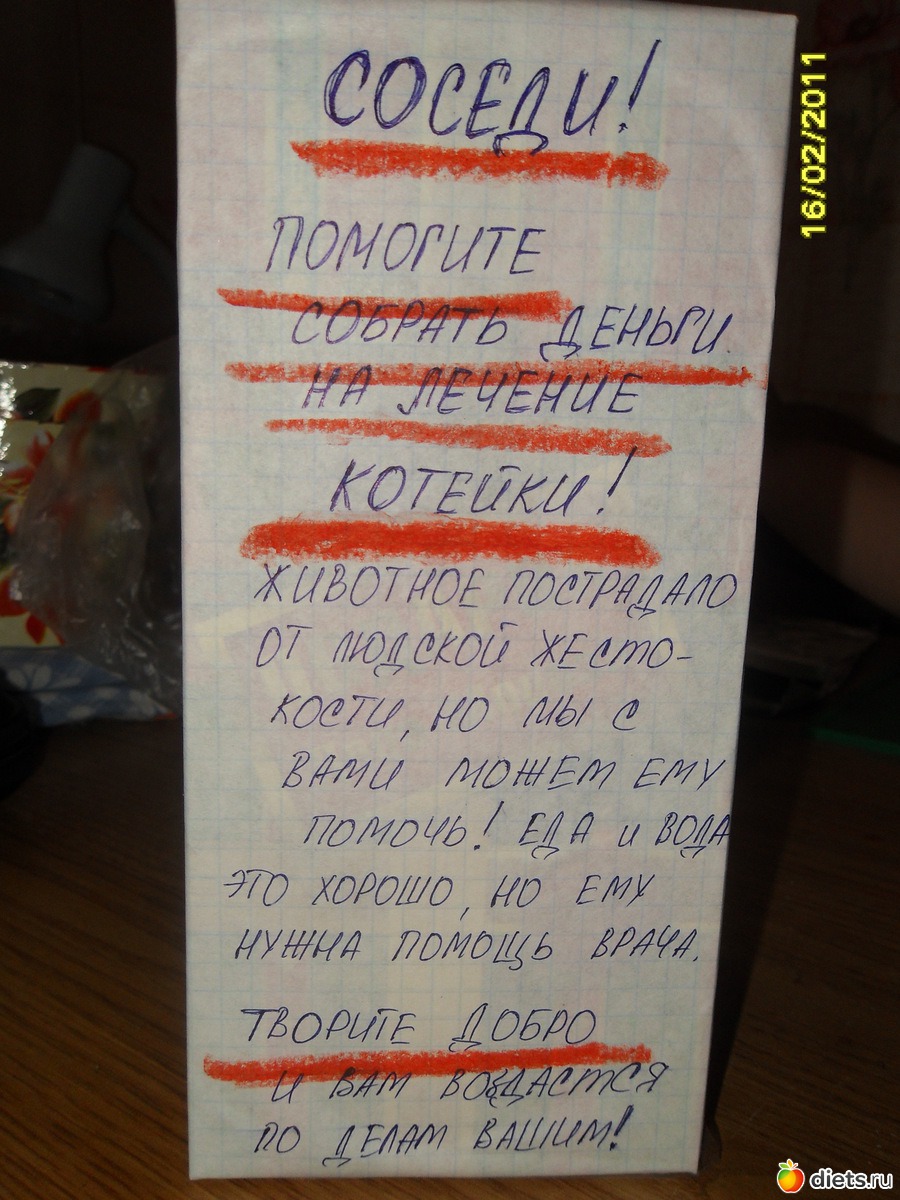 СОСЕДИ!
ПОМОГИТЕ
СОБРАТЬ ДЕНЬГИ
НА ЛЕЧЕНИЕ
КОТЕЙКИ!
ЖИВОТНОЕ ПОСТРАДАЛО
ОТ ЛЮДСКОЙ ЖЕСТО-
КОСТИ, НО МЫ С
ВАМИ МОЖЕМ ЕМУ
ПОМОЧЬ! ЕДА И ВОДА
ЭТО ХОРОШО, НО ЕМУ
НУЖНА ПОМОЩЬ ВРАЧА.
ТВОРИТЕ ДОБРО
И ВАМ ВОЗДАСТСЯ
ПО ДЕЛАМ ВАШИМ!
16/02/2011
diets.ru